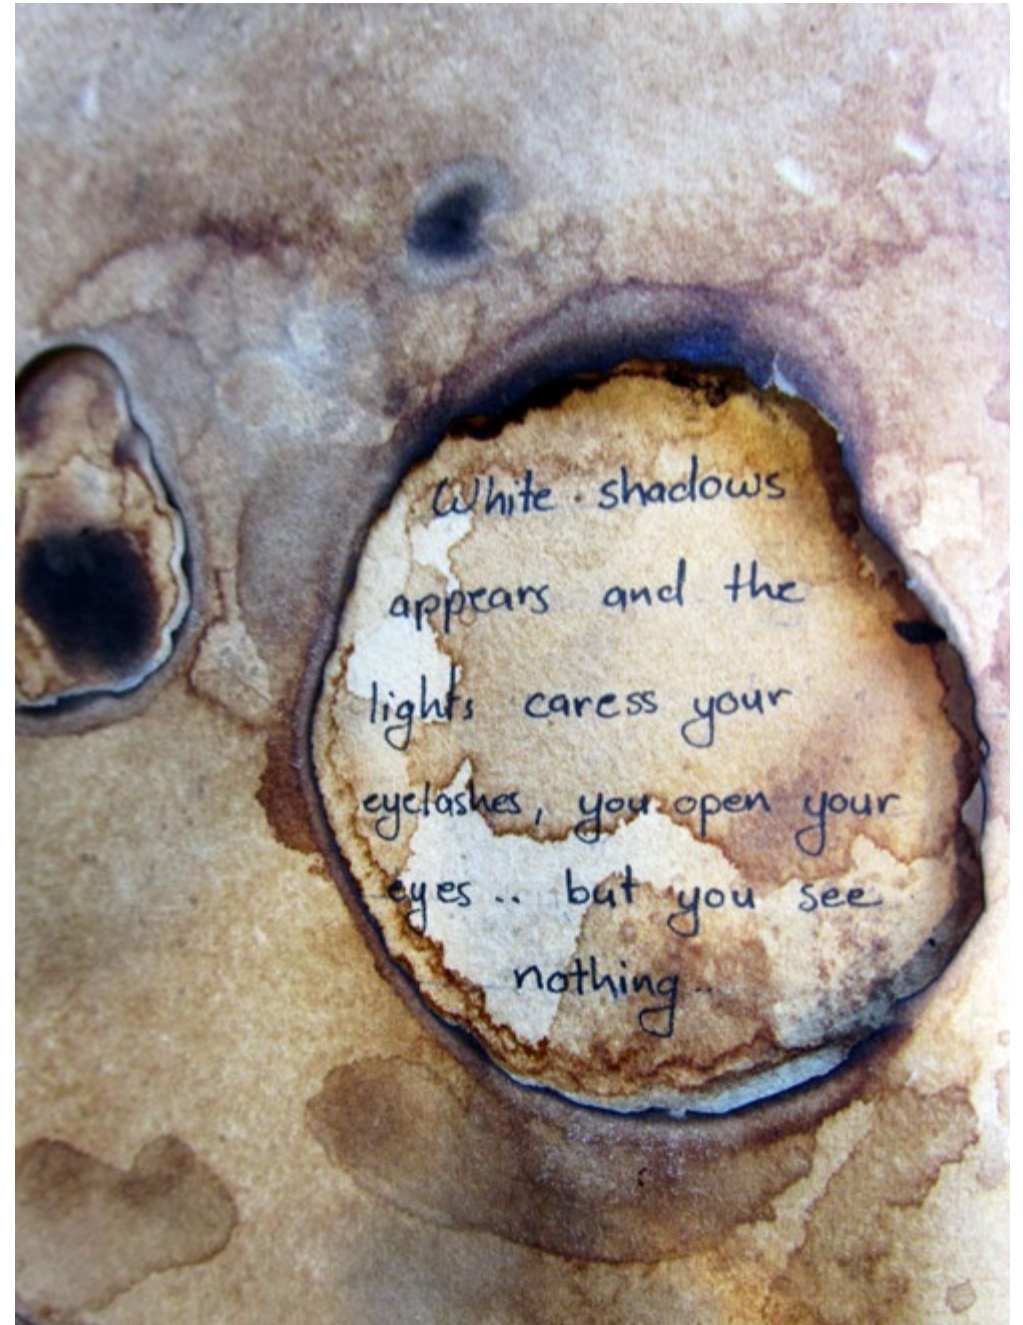 White shadows
appears and the
lights caress your
eyelashes, you open your
eyes .. but you see
nothing..